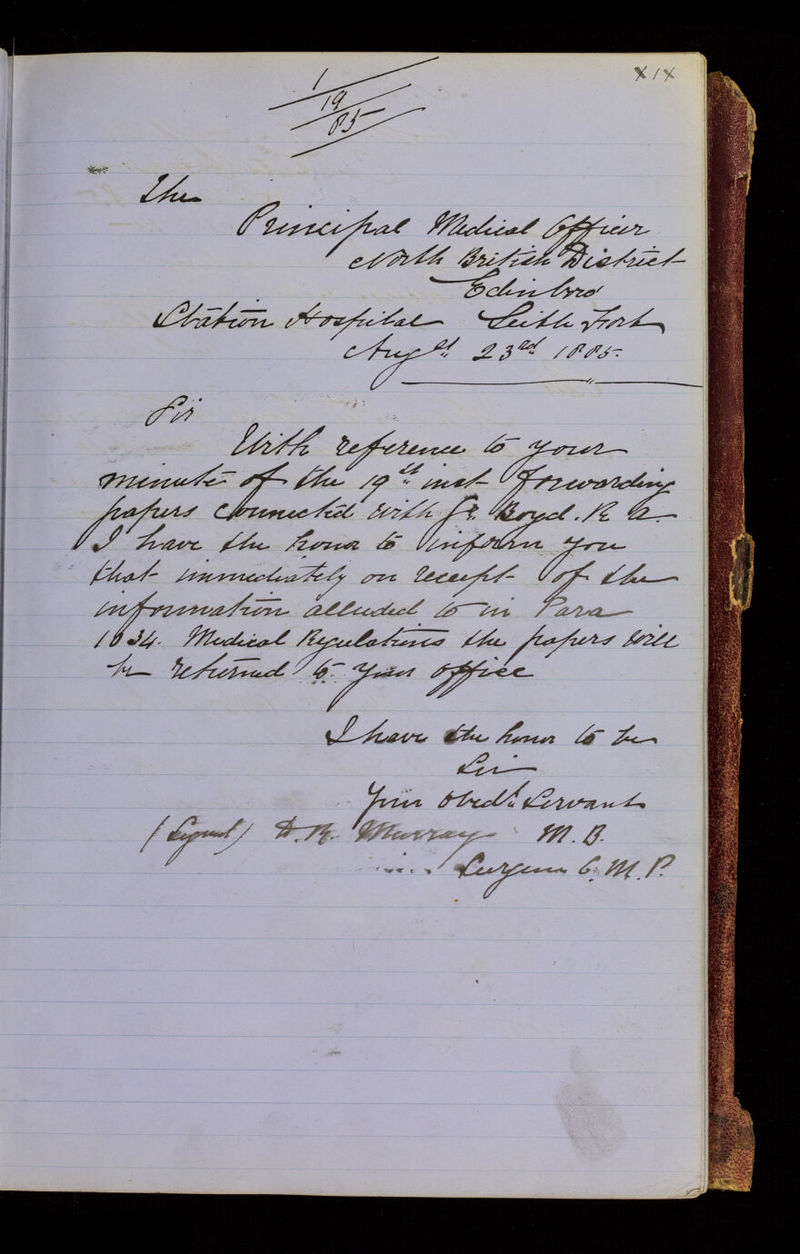 XIX
1
19
85
The
Principal Medical Officer
North British District
Edinbro'
Station Hospital Leith Fort
Augst 23rd 1885.
Sir
With reference to your
minute of the 19th inst forwarding
papers connected with Gr. Boyd. R A
I have the honor to inform you
that immediately on receipt of the
information alluded to in Para
1034. Medical Regulations the papers will
be returned to your office
I have the honor to be
Sir
Your obedt Servant
(Signed) D. R. Murray M.B.
Surgeon